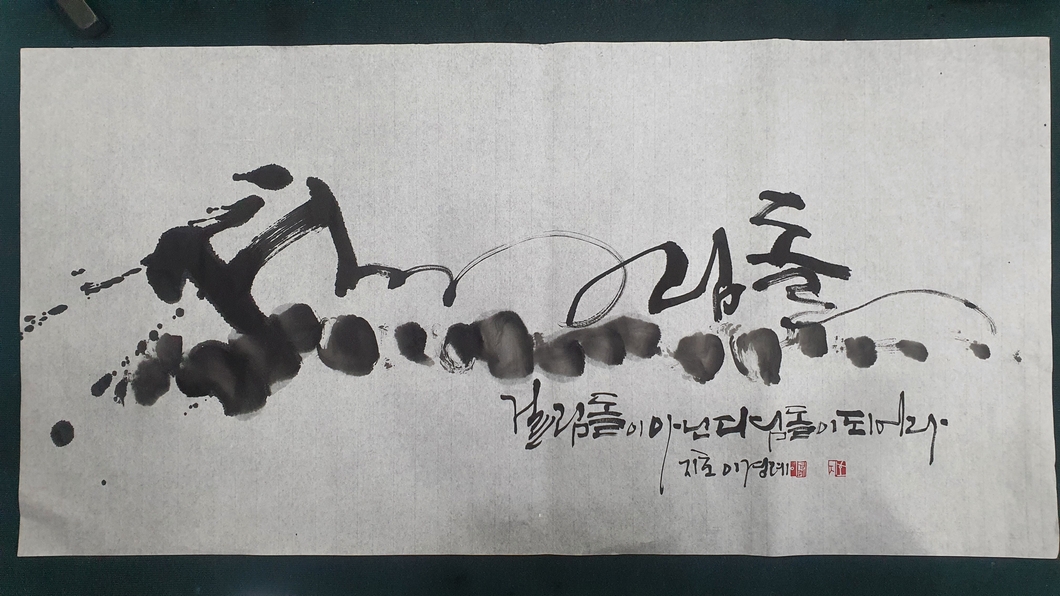 디딤돌
걸림돌이 아닌 디딤돌이 되어라.
지호 이경례